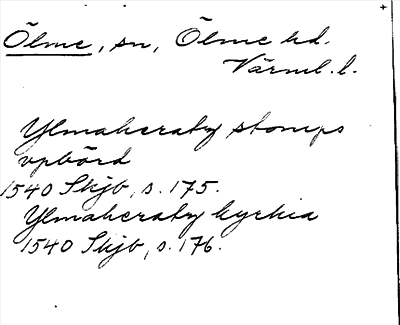 Ölme, sn, Ölme hd.
Värml. l.
Ylmaheraby stomps
vpbörd
1540 Skjb, s. 175.
Ylmaheraby kyrkia
1540 Skjb, s. 176.